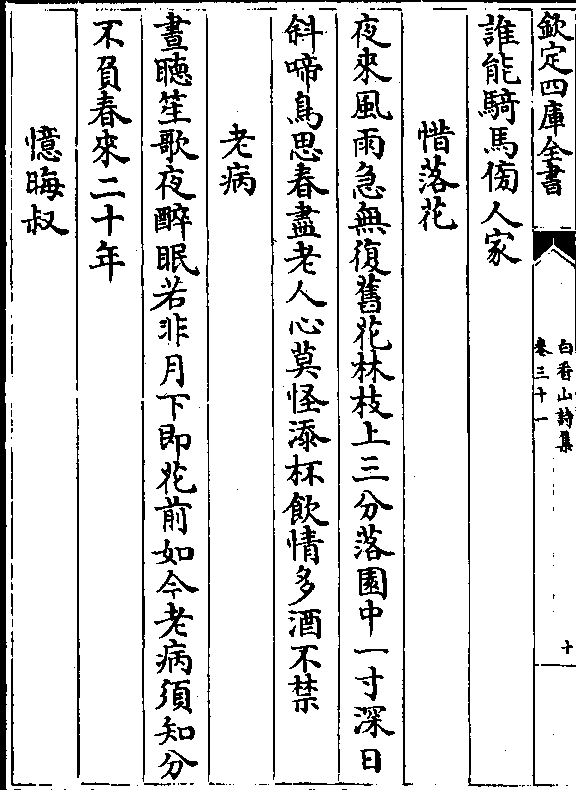 欽定四庫全書
白香山詩集
卷三十一
十
誰能騎馬傍人家
惜落花
夜來風雨急無復舊花林枝上三分落園中一寸深日
斜啼鳥思春盡老人心莫怪添杯飲情多酒不禁
老病
晝聽笙歌夜醉眠若非月下即花前如今老病須知分
不負春來二十年
憶晦叔